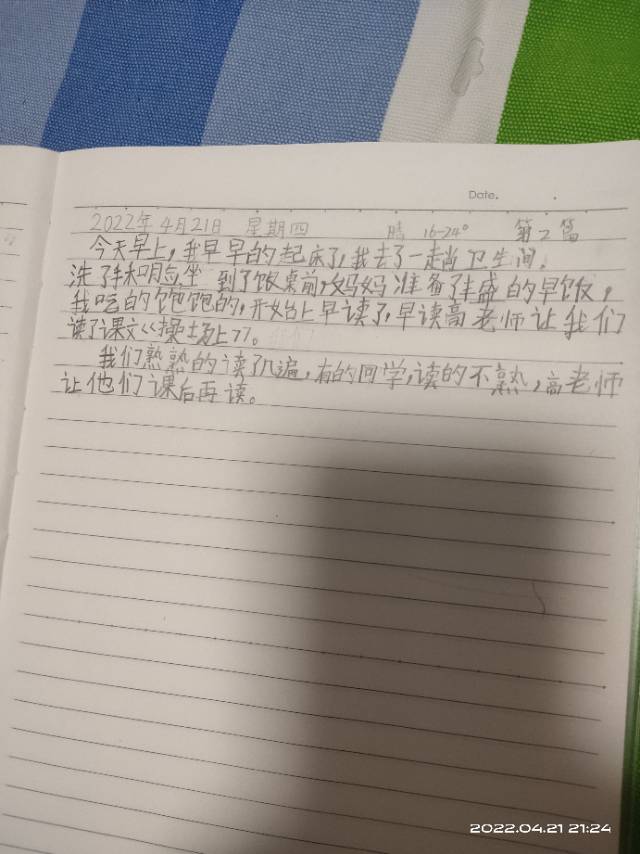 Date.
2022年 4月21日 星期四 晴 16-24° 第2篇
今天早上,我早早的起床了,我去了一趟卫生间,
洗了手和脸坐 到了饭桌前,妈妈准备了丰盛的早饭,
我吃的饱饱的,开始上早读了,早读高老师让我们
读了课文<<操场上>>。
我们熟熟的读了几遍,有的同学,读的不熟,高老师
让他们课后再读。
2022.04.21 21:24